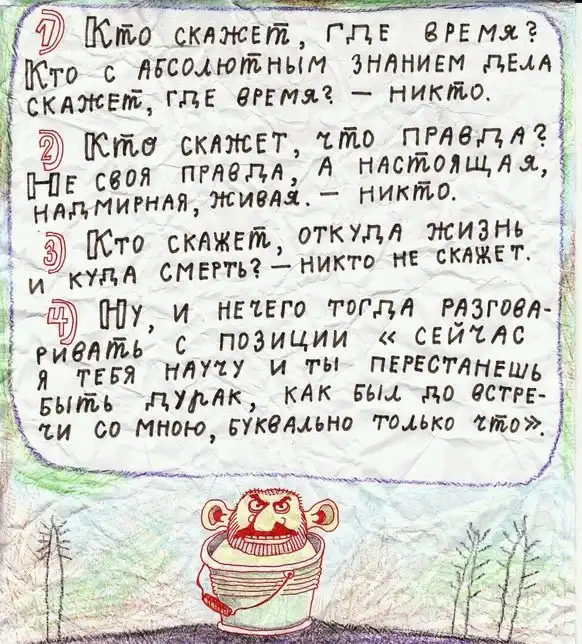 1) Кто скажет, где время?
Кто с абсолютным знанием дела
скажет, где время? — никто.
2) Кто скажет, что правда?
Не своя правда, а настоящая,
надмирная, живая. — никто.
3) Кто скажет, откуда жизнь
и куда смерть? — никто не скажет.
4) Ну, и нечего тогда разгова-
ривать с позиции « сейчас
я тебя научу и ты перестанешь
быть дурак, как был до встре-
чи со мною, буквально только что».